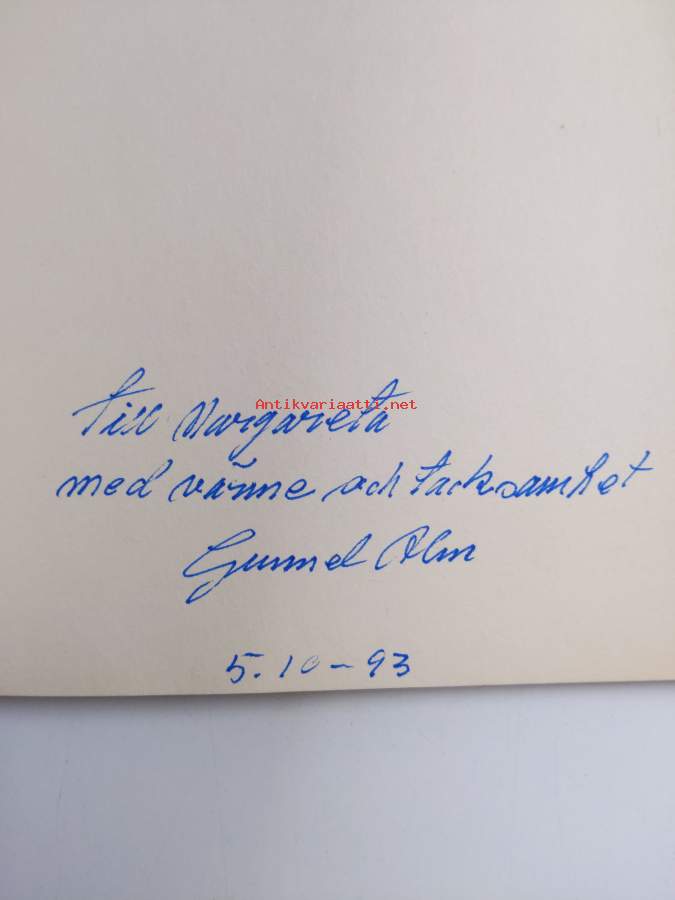 Till Margareta
Antikvariaatti.net
med värme och tacksamhet
Gunnel Alm
5.10-93